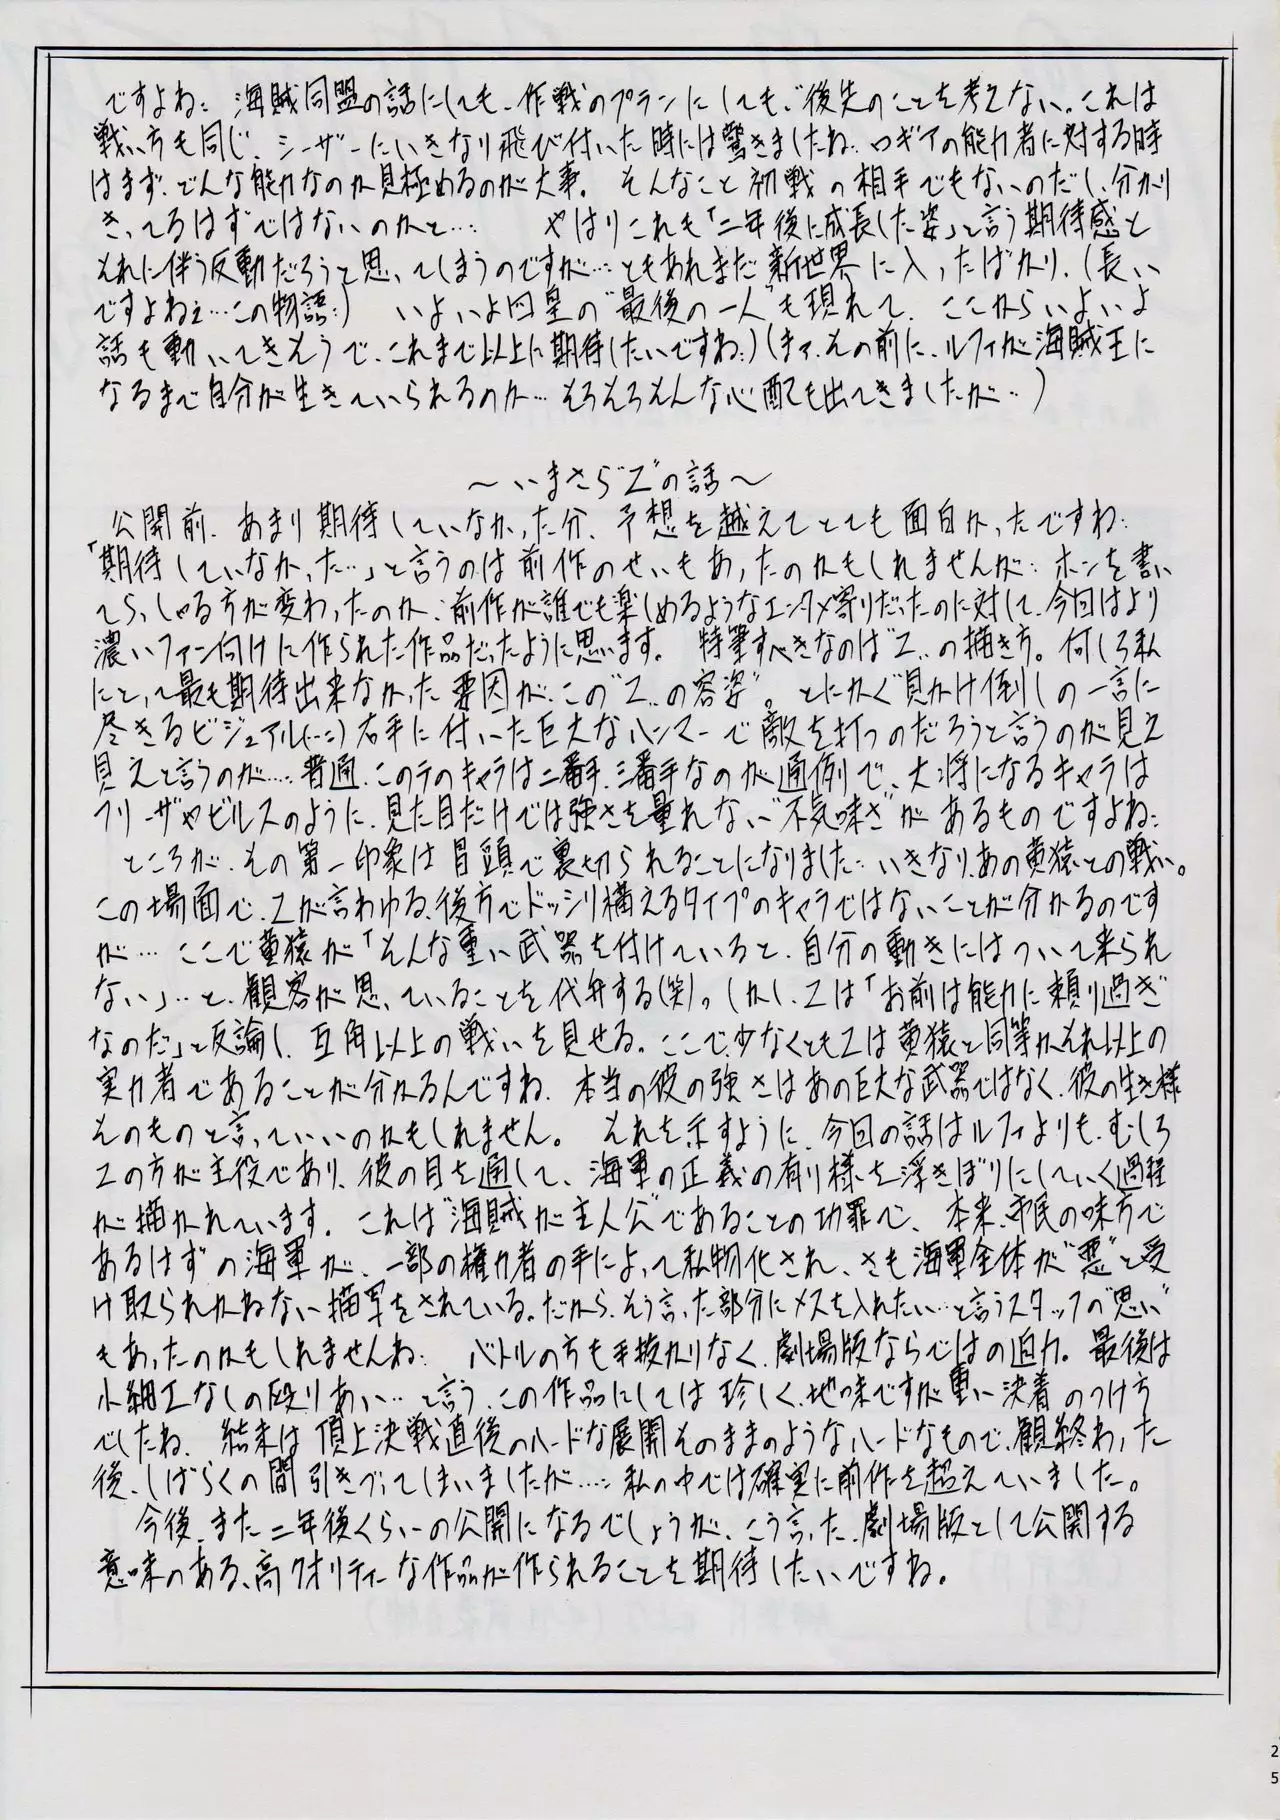 ですよね; 海賊同盟の話にしても、作戦のプランにしても、"後先のことを考えない。これは
戦い方も同じ、シーザーにいきなり飛び付いた時には驚きましたね… ロギアの能力者に対する時
はまず、どんな能力なのか見極めるのが大事。 そんなこと初戦の相手でもないのだし、分かり
きってるはずではないのかと…… やはりこれも「二年後に成長した姿」と言う期待感と
それに伴う反動だろうと思ってしまうのですが…ともあれまだ新世界に入ったばかり、(長い
ですよねェ…この物語;) いよいよ四皇の"最後の一人"も現れて、ここからいよいよ
話も動いてきそうで、これまで以上に期待したいですね;)(まァ、その前に、ルフィが海賊王に
なるまで自分が生きていられるのか…そろそろそんな心配も出てきましたが…)
～いまさら"Z"の話～
公開前、あまり期待していなかった分、予想を越えてとても面白かったですね;
「期待していなかった…」と言うのは前作のせいもあったのかもしれませんが… ホンを書い
てらっしゃる方が変わったのか、前作が誰でも楽しめるようなエンタメ寄りだったのに対して、今回はより
濃いファン向けに作られた作品だったように思います。 特筆すべきなのは"Z"の描き方。何しろ私
にとって最も期待出来なかった要因が、この"Z"の容姿"。とにかく"見かけ倒しの一言に
尽きるビジュアル(…;)右手に付いた巨大なハンマーで敵を打つのだろうと言うのが見え
見えと言うのが……普通、このテのキャラは二番手、三番手なのが通例で、大将になるキャラは
フリーザやビルスのように、見た目だけでは強さを量れない"不気味さ"があるものですよね;
ところが、その第一印象は冒頭で裏切られることになりました… いきなり、あの黄猿との戦い。
この場面で、Zが言わゆる、後方でドッシリ構えるタイプのキャラではないことが分かるのです
が… ここで黄猿が「そんな重い武器を付けていると、自分の動きにはついて来られ
ない」…と、観客が思っていることを代弁する(笑)。しかし、Zは「お前は能力に頼り過ぎ
なのだ」と反論し、互角以上の戦いを見せる。ここで、少なくともZは黄猿と同等かそれ以上の
実力者であることが分かるんですね、本当の彼の強さはあの巨大な武器ではなく、彼の生き様
そのものと言っていいのかもしれません。 それを示すように、今回の話はルフィよりも、むしろ
Zの方が主役であり、彼の目を通して、海軍の正義の有り様を浮きぼりにしていく過程
が描かれています。これは"海賊が主人公"であることの功罪で、本来、市民の味方で
あるはずの海軍が、一部の権力者の手によって私物化され、さも海軍全体が"悪"と受
け取られかねない描写をされている。だから、そう言った部分にメスを入れたい…と言うスタッフの"思い"
もあったのかもしれませんね; バトルの方も手抜かりなく、劇場版ならではの迫力。最後は
小細工なしの殴りあい…と言う、この作品にしては珍しく、地味ですが重い決着のつけ方
でしたね、結末は頂上決戦直後のハードな展開そのままのようなハードなもので、観終わった
後、しばらくの間引きづってしまいましたが…;私の中では確実に前作を超えていました。
今後、また二年後くらいの公開になるでしょうが、こう言った劇場版として公開する
意味のある、高クオリティーな作品が作られることを期待したいですね。
25